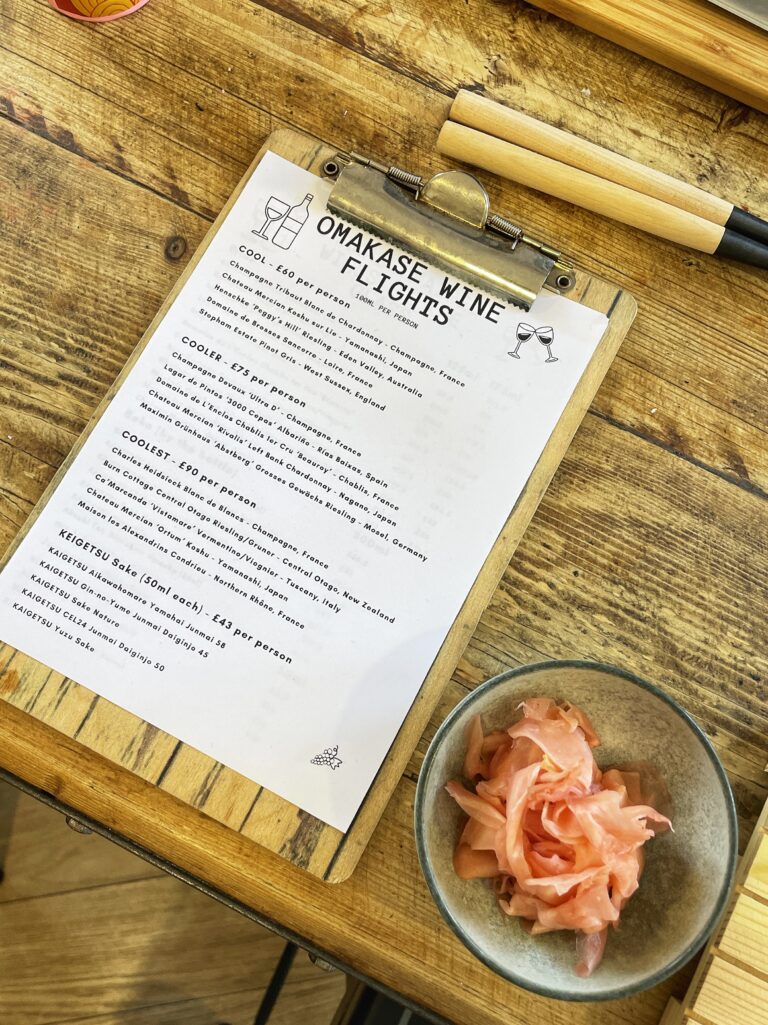 OMAKASE WINE
FLIGHTS
100ML PER PERSON
COOL - £60 per person
Champagne Tribaut Blanc de Chardonnay - Champagne, France
Chateau Mercian Koshu sur Lie - Yamanashi, Japan
Henschke 'Peggy's Hill' Riesling - Eden Valley, Australia
Domaine de Brosses Sancerre - Loire, France
Stopham Estate Pinot Gris - West Sussex, England
COOLER - £75 per person
Champagne Devaux 'Ultra D' - Champagne, France
Lagar de Pintos '3000 Cepas' Albariño - Rias Baixas, Spain
Domaine de L'Enclos Chablis 1er Cru 'Beauroy' - Chablis, France
Chateau Mercian 'Rivalis' Left Bank Chardonnay - Nagano, Japan
Maximin Grünhaus 'Abstberg' Grosses Gewächs Riesling - Mosel, Germany
COOLEST - £90 per person
Charles Heidsieck Blanc de Blancs - Champagne, France
Burn Cottage Central Otago Riesling/Gruner - Central Otago, New Zealand
Ca'Marcanda 'Vistamare' Vermentino/Viognier - Tuscany, Italy
Chateau Mercian 'Ortum' Koshu - Yamanashi, Japan
Maison les Alexandrins Condrieu - Northern Rhône, France
KEIGETSU Sake (50ml each) - £43 per person
KAIGETSU Aikawahomare Yamahai Junmai 58
KAIGETSU Gin-no-Yume Junmai Daiginjo 45
KAIGETSU Sake Nature
KAIGETSU CEL24 Junmai Daiginjo 50
KAIGETSU Yuzu Sake